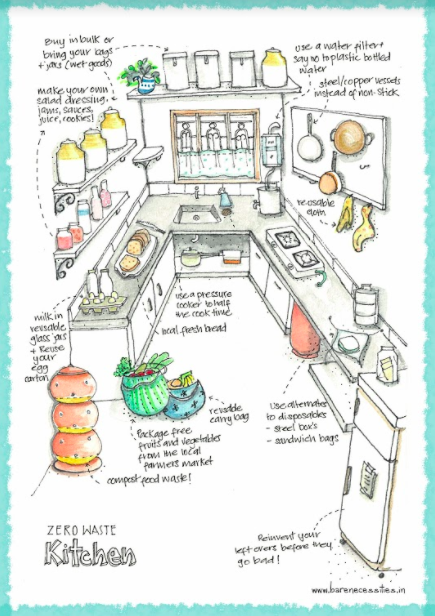 Buy in bulk or
bring your bags
+ jars (wet goods)
use a water filter +
say no to plastic bottled
water
steel/copper vessels
instead of non-stick
make your own
salad dressing,
jams, sauces,
juice, cookies!
reusable
cloth
use a pressure
cooker to half
the cook time
local fresh bread
milk in
reusable
glass jars
+ Reuse
your
egg
carton
reusable
carry bag
Package free
fruits and vegetables
from the local
farmers market
use alternates
to disposables
- steel box's
- sandwich bags
compost food waste!
ZERO WASTE
Kitchen
Reinvent your
left overs before they
go bad!
www.barenecessities.in